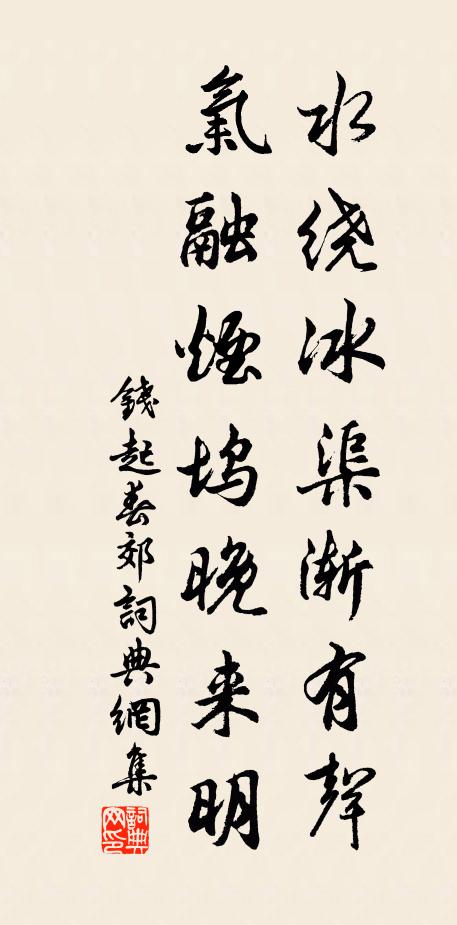 水绕冰渠渐有聲
氣融煙坞晚来明
錢起春郊詞典網集
詞典网印